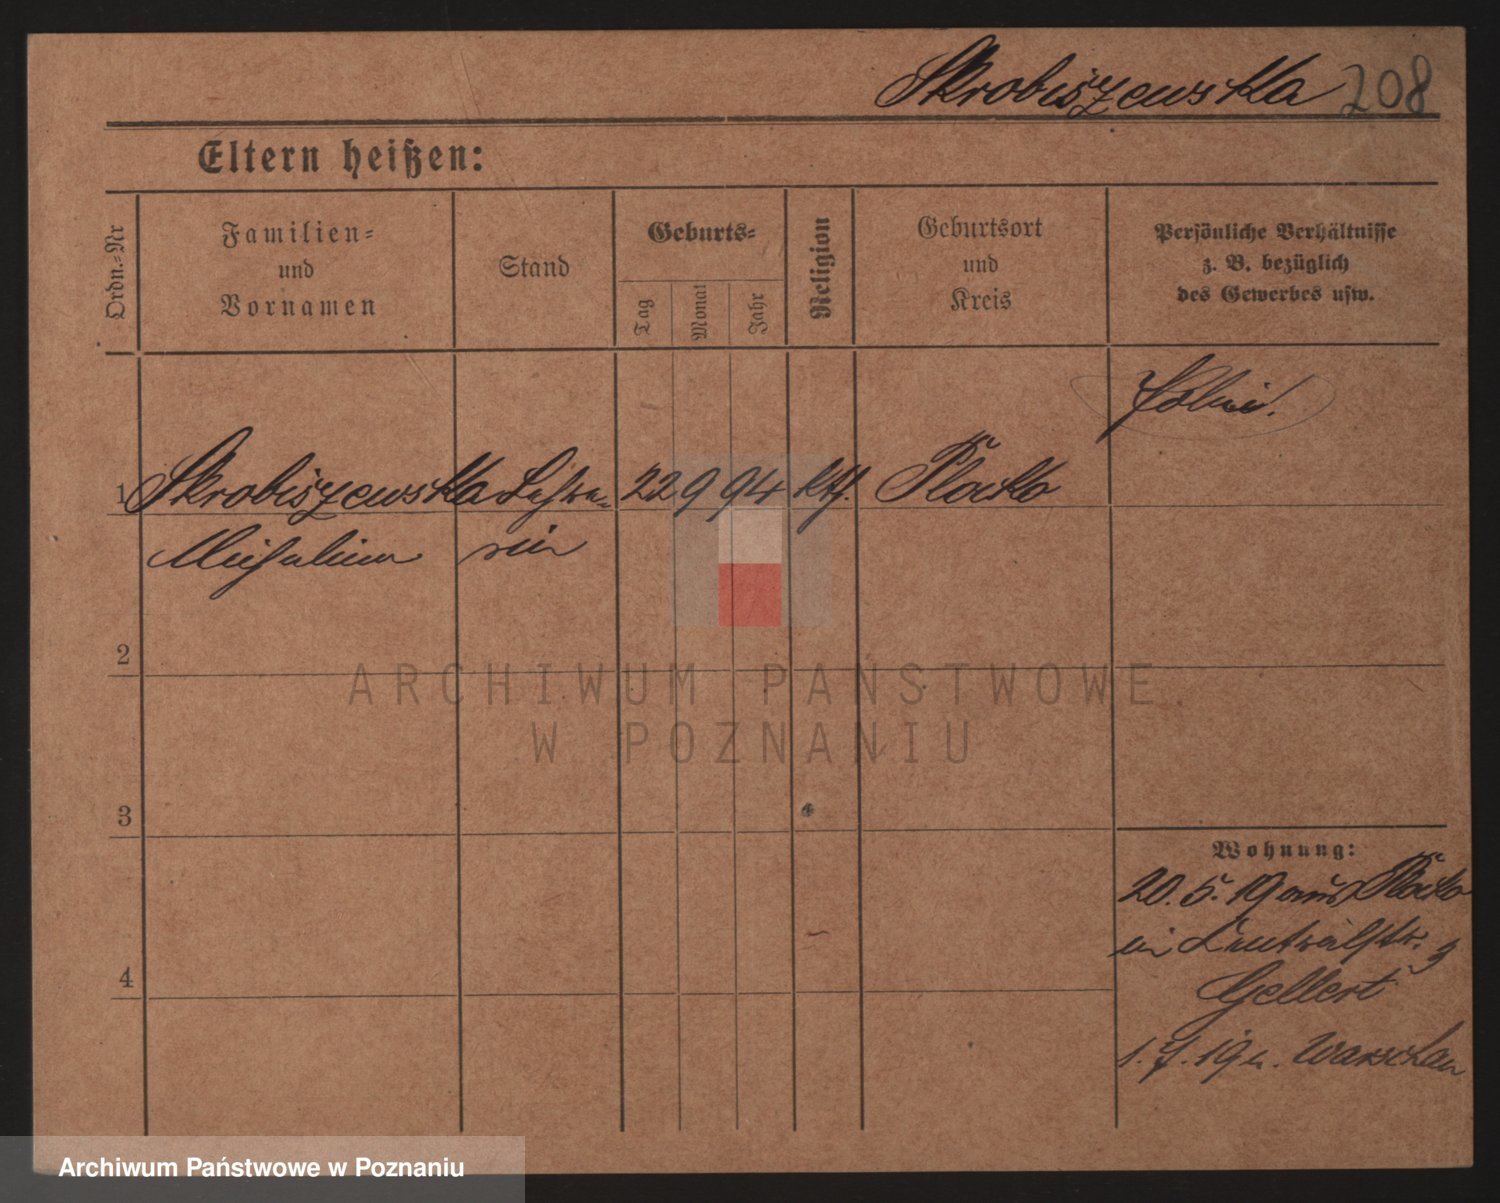 Skrobiszewska 208
Eltern heißen:
Ordn.-Nr
Familien-
und
Vornamen
Stand
Geburts-
Tag
Monat
Jahr
Religion
Geburtsort
und
Kreis
Persönliche Verhältnisse
z. B. bezüglich
des Gewerbes usw.
1 Skrobiszewska Lehre- 22 9 94 kth. Plocko
rin
2
3
4
Wohnung:
20. 5. 19 aus Plocko
in
Gellert
1. 7. 19 n. Warschau
ARCHIWUM PAŃSTWOWE
W POZNANIU
Archiwum Państwowe w Poznaniu